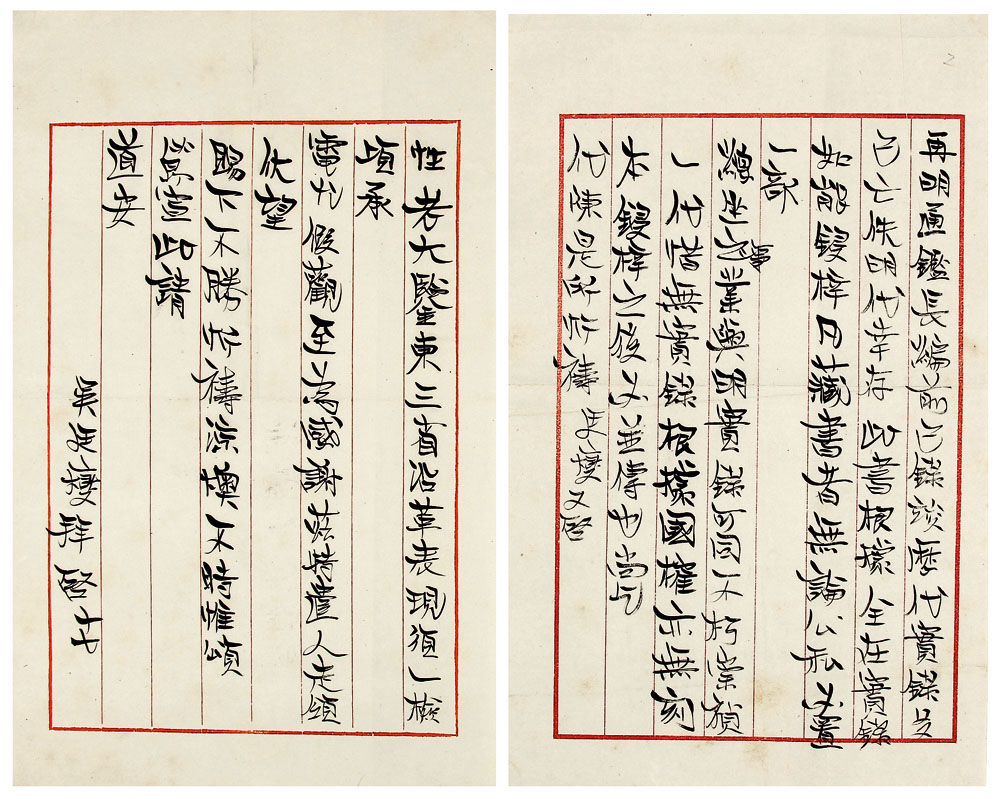 性老大鑒東三省沿革表現須一檢
頃承
電允假觀至為感謝茲特遣人走領
伏望
賜下不勝忻禱涼燠不時惟頌
餐宣此請
道安
吳廷燮拜啓 十七
2
再明通鑑長編前已錄竣歷代實錄皆
已亡佚明代幸存此書根據全在實錄
如能鋟梓凡藏書者無論公私必置
一部
之業與明實錄可同不朽崇禎
一代惜無實錄根據國榷亦無刻
本鋟梓之後必並傳也尚乞
代陳是所忻禱 廷燮又啓